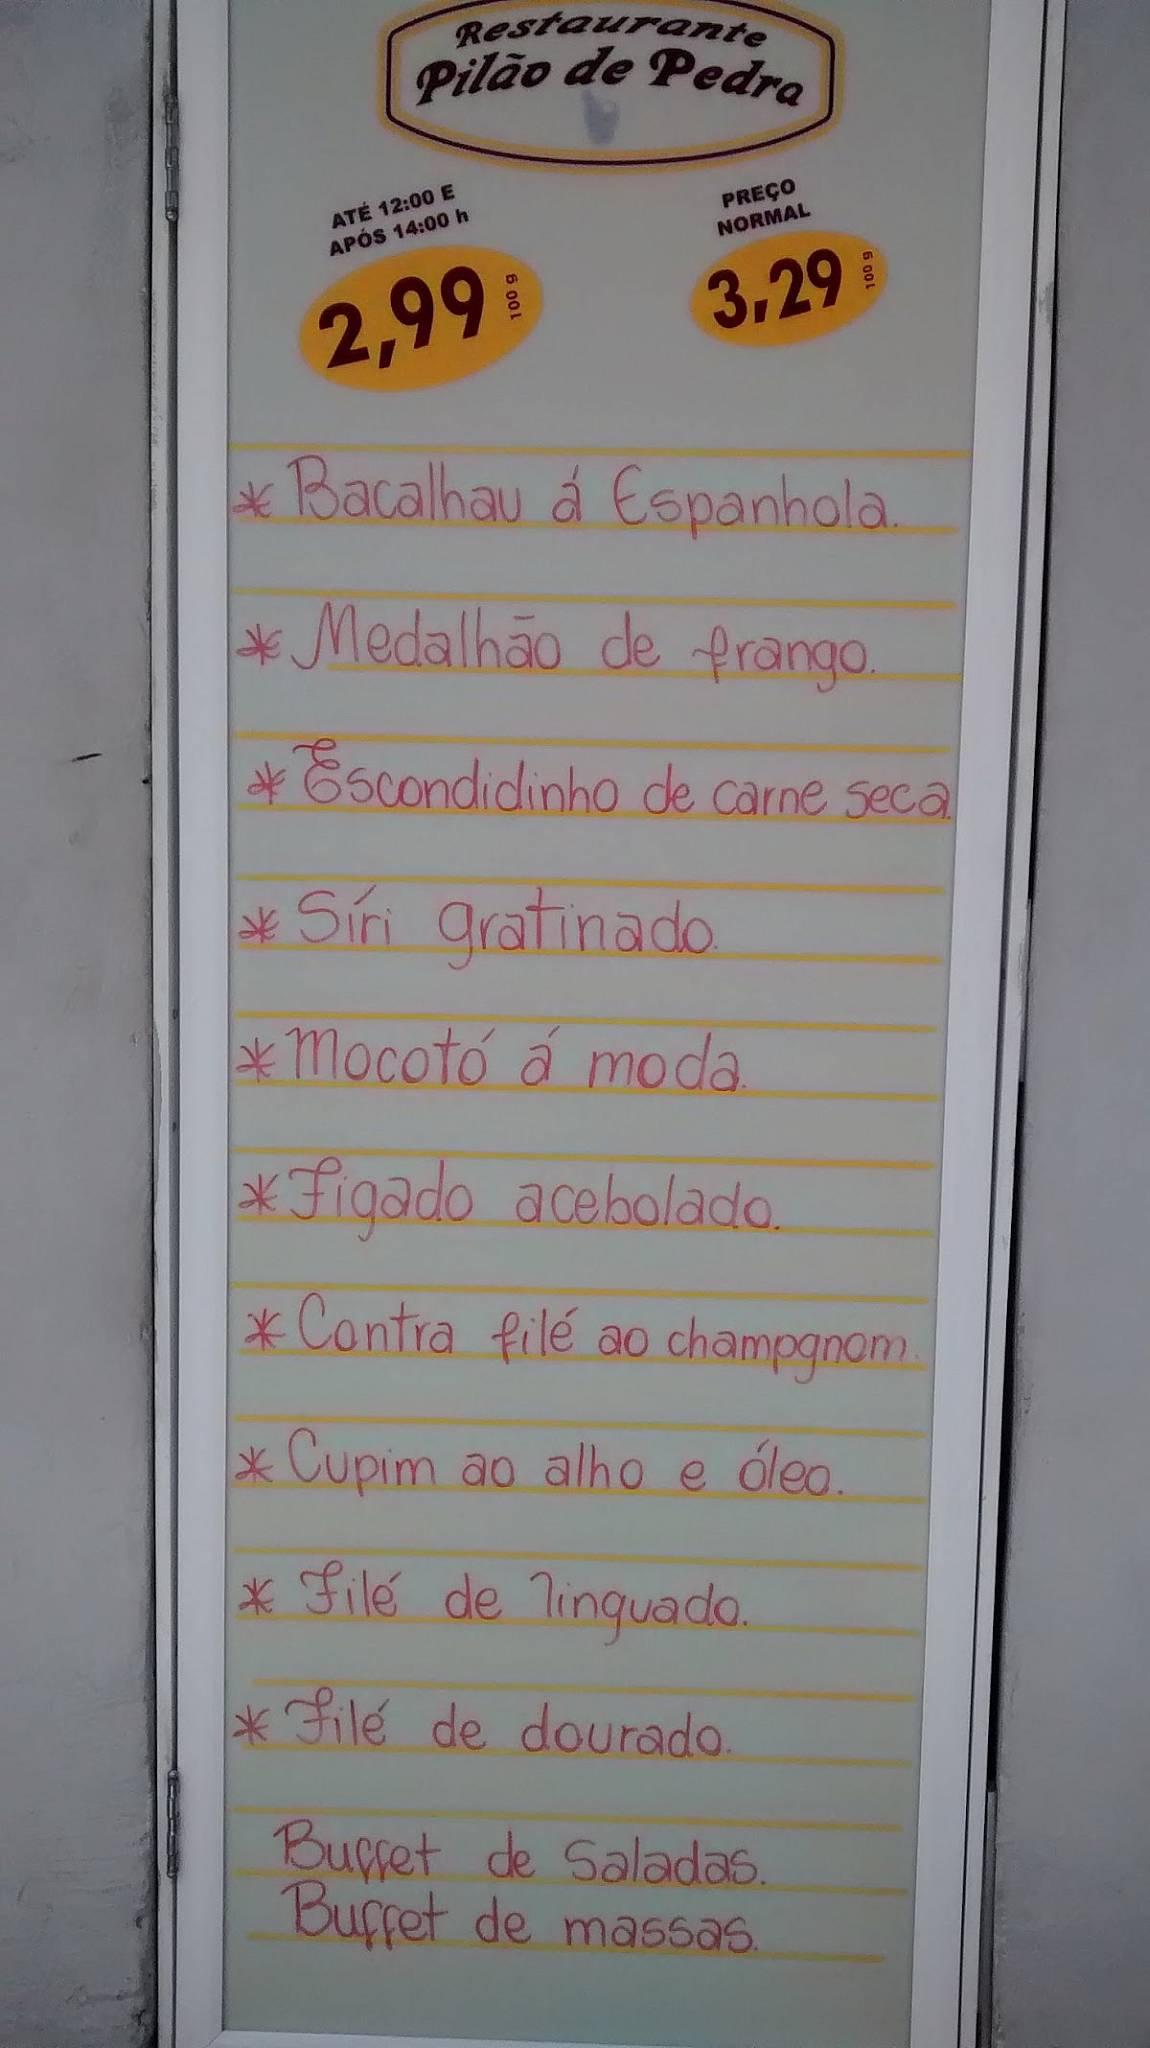 Restaurante
Pilão de Pedra
ATÉ 12:00 E
APÓS 14:00 h
2,99 100 g
PREÇO
NORMAL
3,29 100 g
* Bacalhau á Espanhola.
* Medalhão de frango.
* Escondidinho de carne seca.
* Síri gratinado.
* Mocotó á moda.
* Figado acebolado.
* Contra filé ao champgnom.
* Cupim ao alho e óleo.
* Filé de linguado.
* Filé de dourado.
Buffet de Saladas.
Buffet de massas.